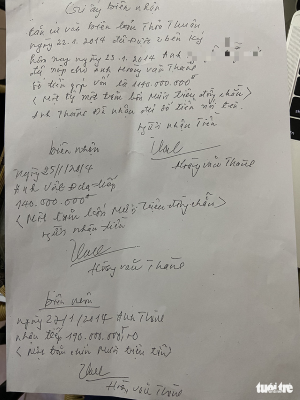 Giấy biên nhận
Căn cứ vào biên bản Thỏa Thuận
ngày 22.1.2014 đã được 2 bên ký
hôm nay ngày 23.1.2014 Anh
đã nộp cho anh Hoàng văn Thanh
Số tiền góp vốn là 1140.000.000đ
(Một tỷ một trăm bốn Mươi triệu đồng chẵn)
Anh Thanh Đã nhận đủ số tiền nói trên.
người nhận Tiền
Hoàng văn Thanh
biên nhận
ngày 25/1/2014
Anh
140.000.000đ
(Một trăm bốn Mươi triệu đồng chẵn)
người nhận tiền
Hoàng văn Thanh
biên nhận
ngày 27/1/2014 Anh Thanh
nhận tiếp 190.000.000
(Một trăm chín Mươi triệu
Hoàng văn Thanh
tuổi trẻ